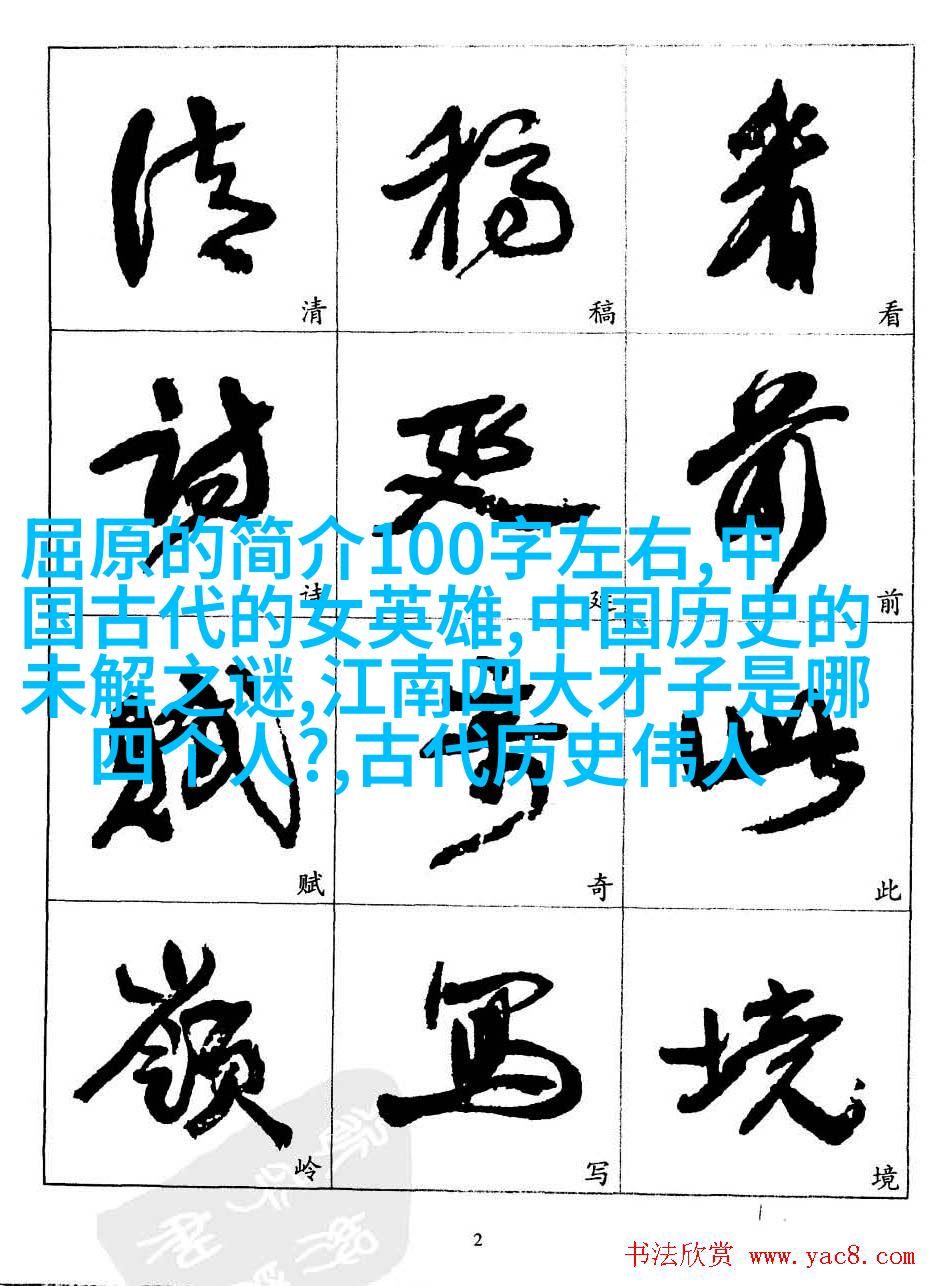 清 稿 看
诗 延 前
屈原的简介100字左右,中
国古代的女英雄,中国历史的
未解之谜,江南四大才子是哪
四个人?,古代历史伟人
赋 奇 此
岭 写 境
2
书法欣赏 www.yac8.com